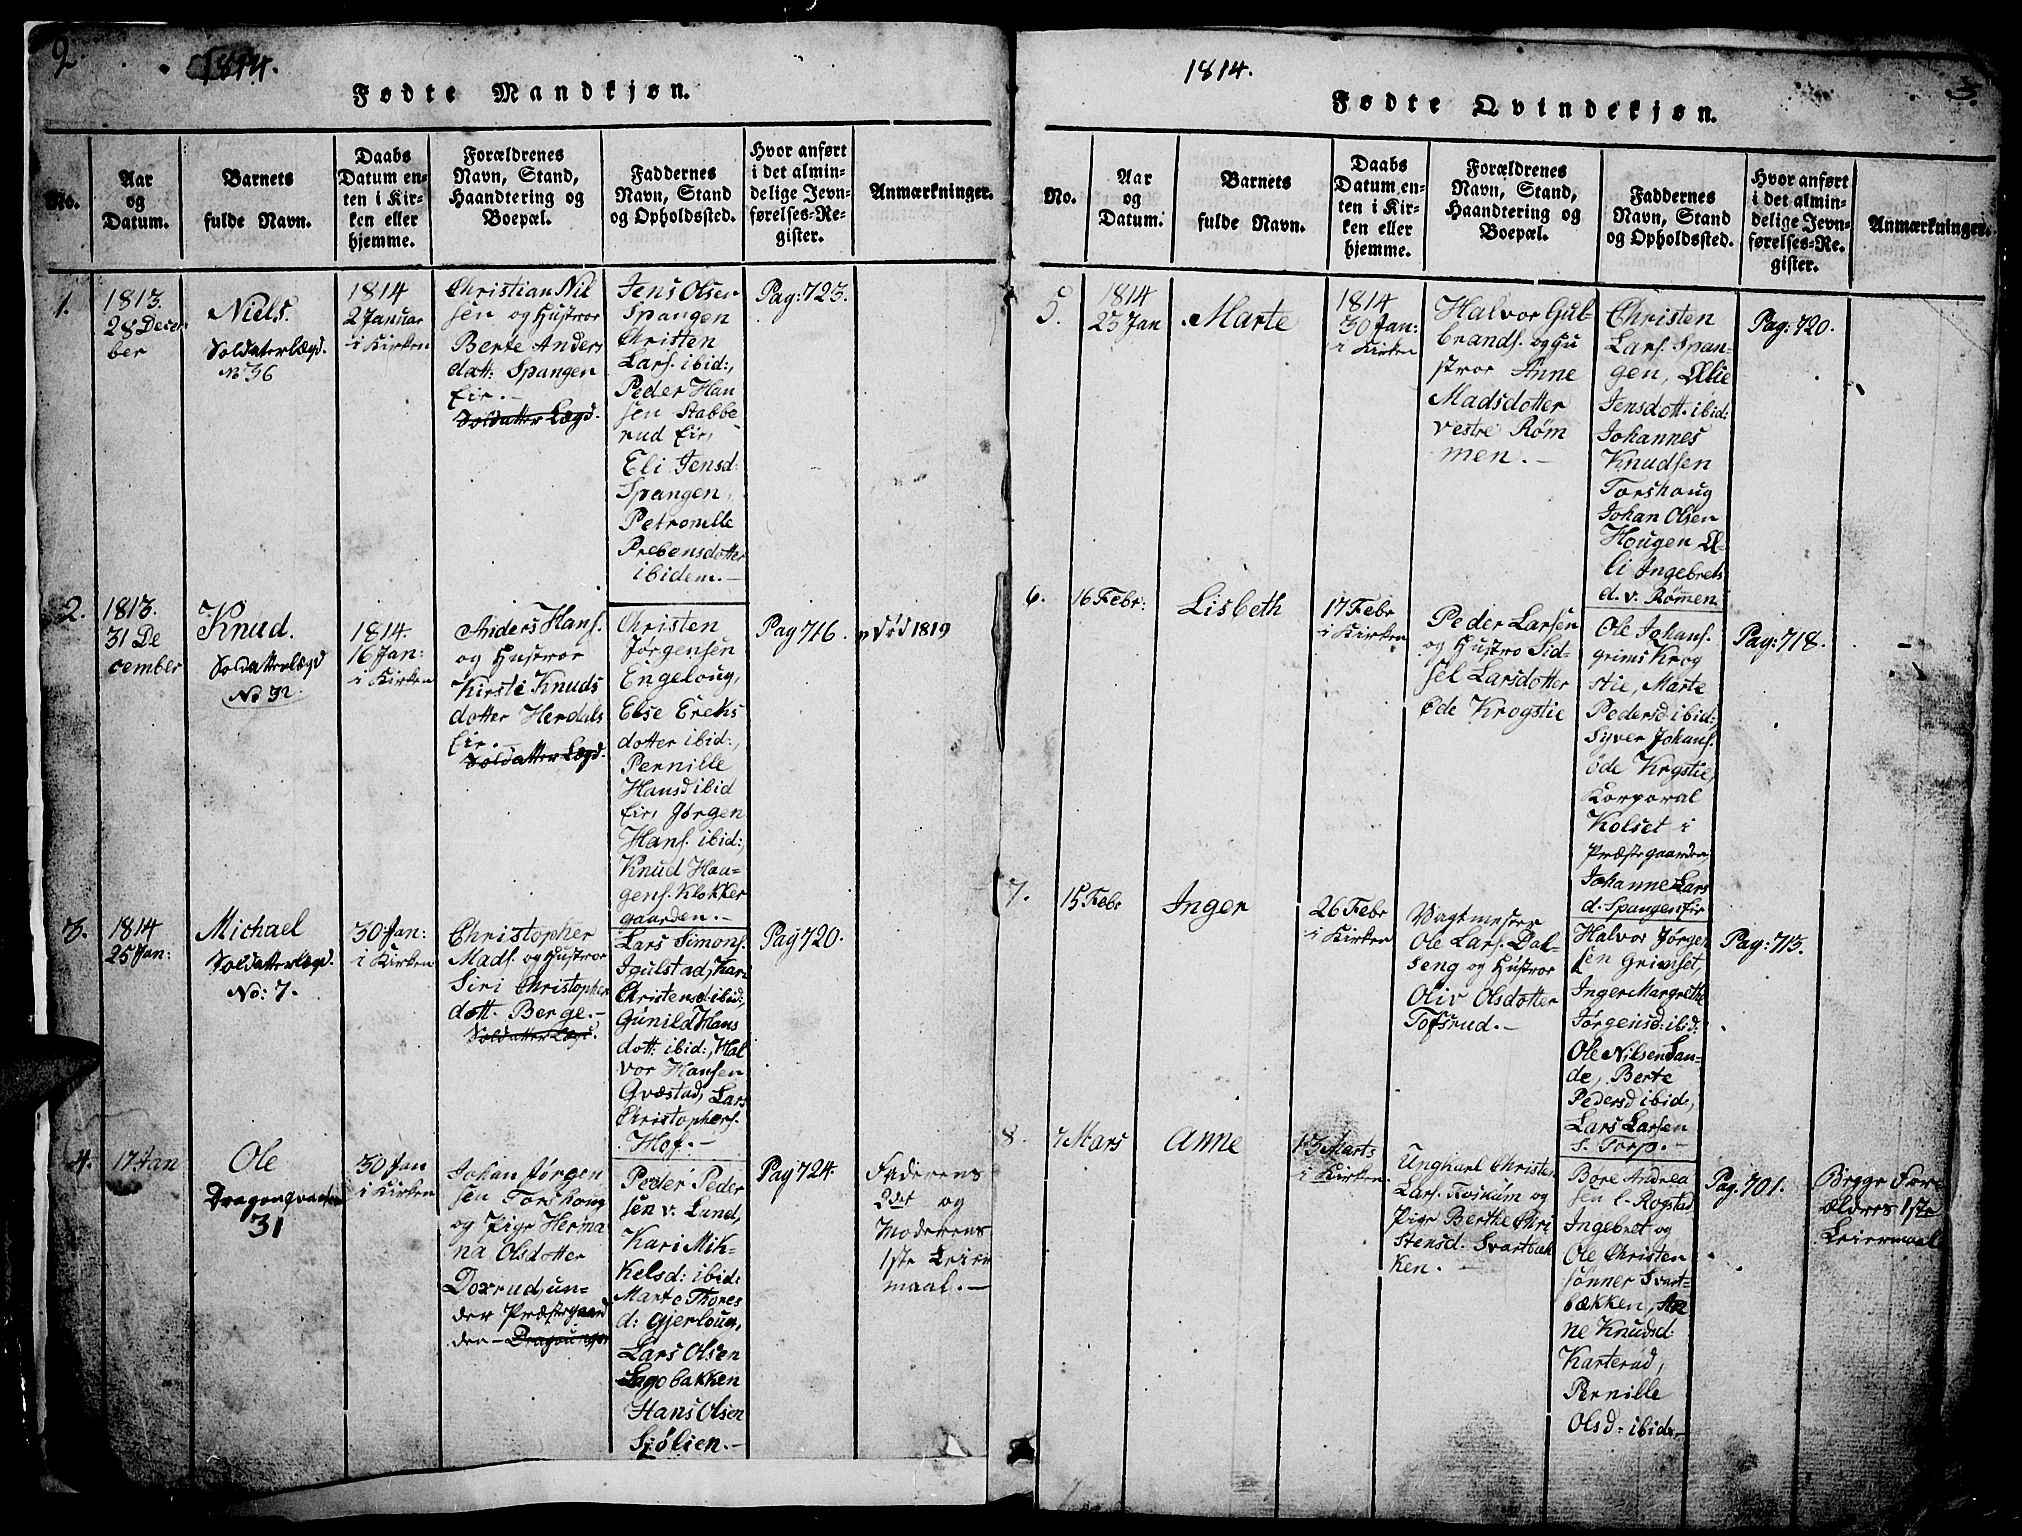 2.
1814.
Fødte Mandkjøn.
No.
Aar
og
Datum.
Barnets
fulde Navn.
Daabs
Datum en-
ten i Kir-
ken eller
hjemme.
Forældrenes
Navn, Stand,
Haandtering og
Boepæl.
Faddernes
Navn, Stand
og Opholdssted.
Hvor anført
i det almin-
delige Jevn-
førelses-Re-
gister.
Anmærkninger.
1.
1813.
28 Decem
ber
Niels.
Soldaterlægd.
No 36
1814
2 Januar
i Kirken
Christian Nil
sen og Hustroe
Berte Anders
datt: Spangen
Eir.-
Soldatter Lægd.
Jens Olsen
Spangen
Christen
Lars. ibid:,
Peder Han
sen Stabbe
rud Eir,
Eli Jensd:
Spangen,
Petronelle
Prebensdotter
ibidem.-
Pag: 723.
2.
1813.
31 De
cember
Knud.
Soldatterlægd
No 32
1814.
16 Jan:
i Kirken
Anders Hans.
og Hustroe
Kirsti Knuds
dotter Herdals
Eir.-
Soldatter Lægd.
Christen
Jørgensen
Engeloug,
Else Ereks
dotter ibid:,
Pernille
Hansd ibid
Eir, Jørgen
Hans. ibid:,
Knud Haa-
gens. Klokker
gaarden.-
Pag 716.
Død 1819
3.
1814
25 Jan:
Michael
Soldatterlægd.
No: 7.
30 Jan:
i Kirken
Christopher
Mads. og Hustroe
Siri Christopher
dott. Berge.-
Soldatter Lægd.
Lars Simons.
Igulstad, Kari
Christensd ibid:
Gunild Hans
dott: ibid:, Hal
vor Hansen
Qvæstad, Lars
Christophers.
Hof.-
Pag 720.
4.
17 Jan
Ole
31
30 Jan
i Kirken
Johan Jørgen
sen Torshoug
og Pige Herma
na Olsdotter
Doxrud, un-
der Præstegaar
den-
Peder
sen v. Lund,
Kari Mik-
kelsd: ibid:
Marte Thores
d: Gjerloug,
Lars Olsen
bakken
Hans Olsen
Sjølien.-
Pag 724.
Faderens
2det og
Moderens
1ste Leier
maal.-
3.
1814.
Fødte Qvindekjøn.
No.
Aar
og
Datum.
Barnets
fulde Navn.
Daabs
Datum en-
ten i Kir-
ken eller
hjemme.
Forældrenes
Navn, Stand,
Haandtering og
Boepæl.
Faddernes
Navn, Stand
og Opholdssted.
Hvor anført
i det almin-
delige Jevn-
førelses-Re-
gister.
Anmærkninger.
5.
1814
23 Jan
Marte
1814
30 Jan:
i Kirken
Halvor Gul-
brands. og Hu
stroe Anne
Madsdotter
vestre Røm
men.-
Christen
Lars. Span-
gen, Ælie
Jensdott. ibid:
Johannes
Knudsen
Torshoug
Johan Olsen
Hougen Æ-
li Ingebrets
d. v. Rømen.
Pag: 720.
6.
16 Febr:
Lisbeth
17 Febr
i Kirken
Peder Larsen
og Hustro Sid-
sel Larsdotter
Øde Krogstie
Ole Johans.
grims Krog
stie, Marte
Pedersd ibid:
Syver Johans.
øde Krgstie,
Korporal
Kolset i
Præstegaarden
Johanne Lars
d: Spangen Eir
Pag: 718.
7.
15 Febr
Inger
26 Febr
i Kirken
Vagtmester
Ole Lars. Dal-
seng og Hustroe
Oliv Olsdotter
Tofsrud.-
Halvor Jørgen
sen Grimset,
Inger Margrethe
Jørgensd: ibid:
Ole Nilsen San-
de, Berte
Pedersd ibid:,
Lars Larsen
s. Torp.-
Pag: 713.
8.
7 Mars
Anne
13 Marts
i Kirken.
Ungkarl Christen
Lars. Roskum og
Pige Berthe Chri
stensd. Svartbæk
ken.-
Børe Andrea
sen l. Rogstad
Ingebret og
Ole Christen
sønner Svart-
bækken, An
ne Knudsd:
Karterud,
Pernille
Olsd: ibid.-
Pag: 701.
Begge For
ældres 1ste
Leiermaal